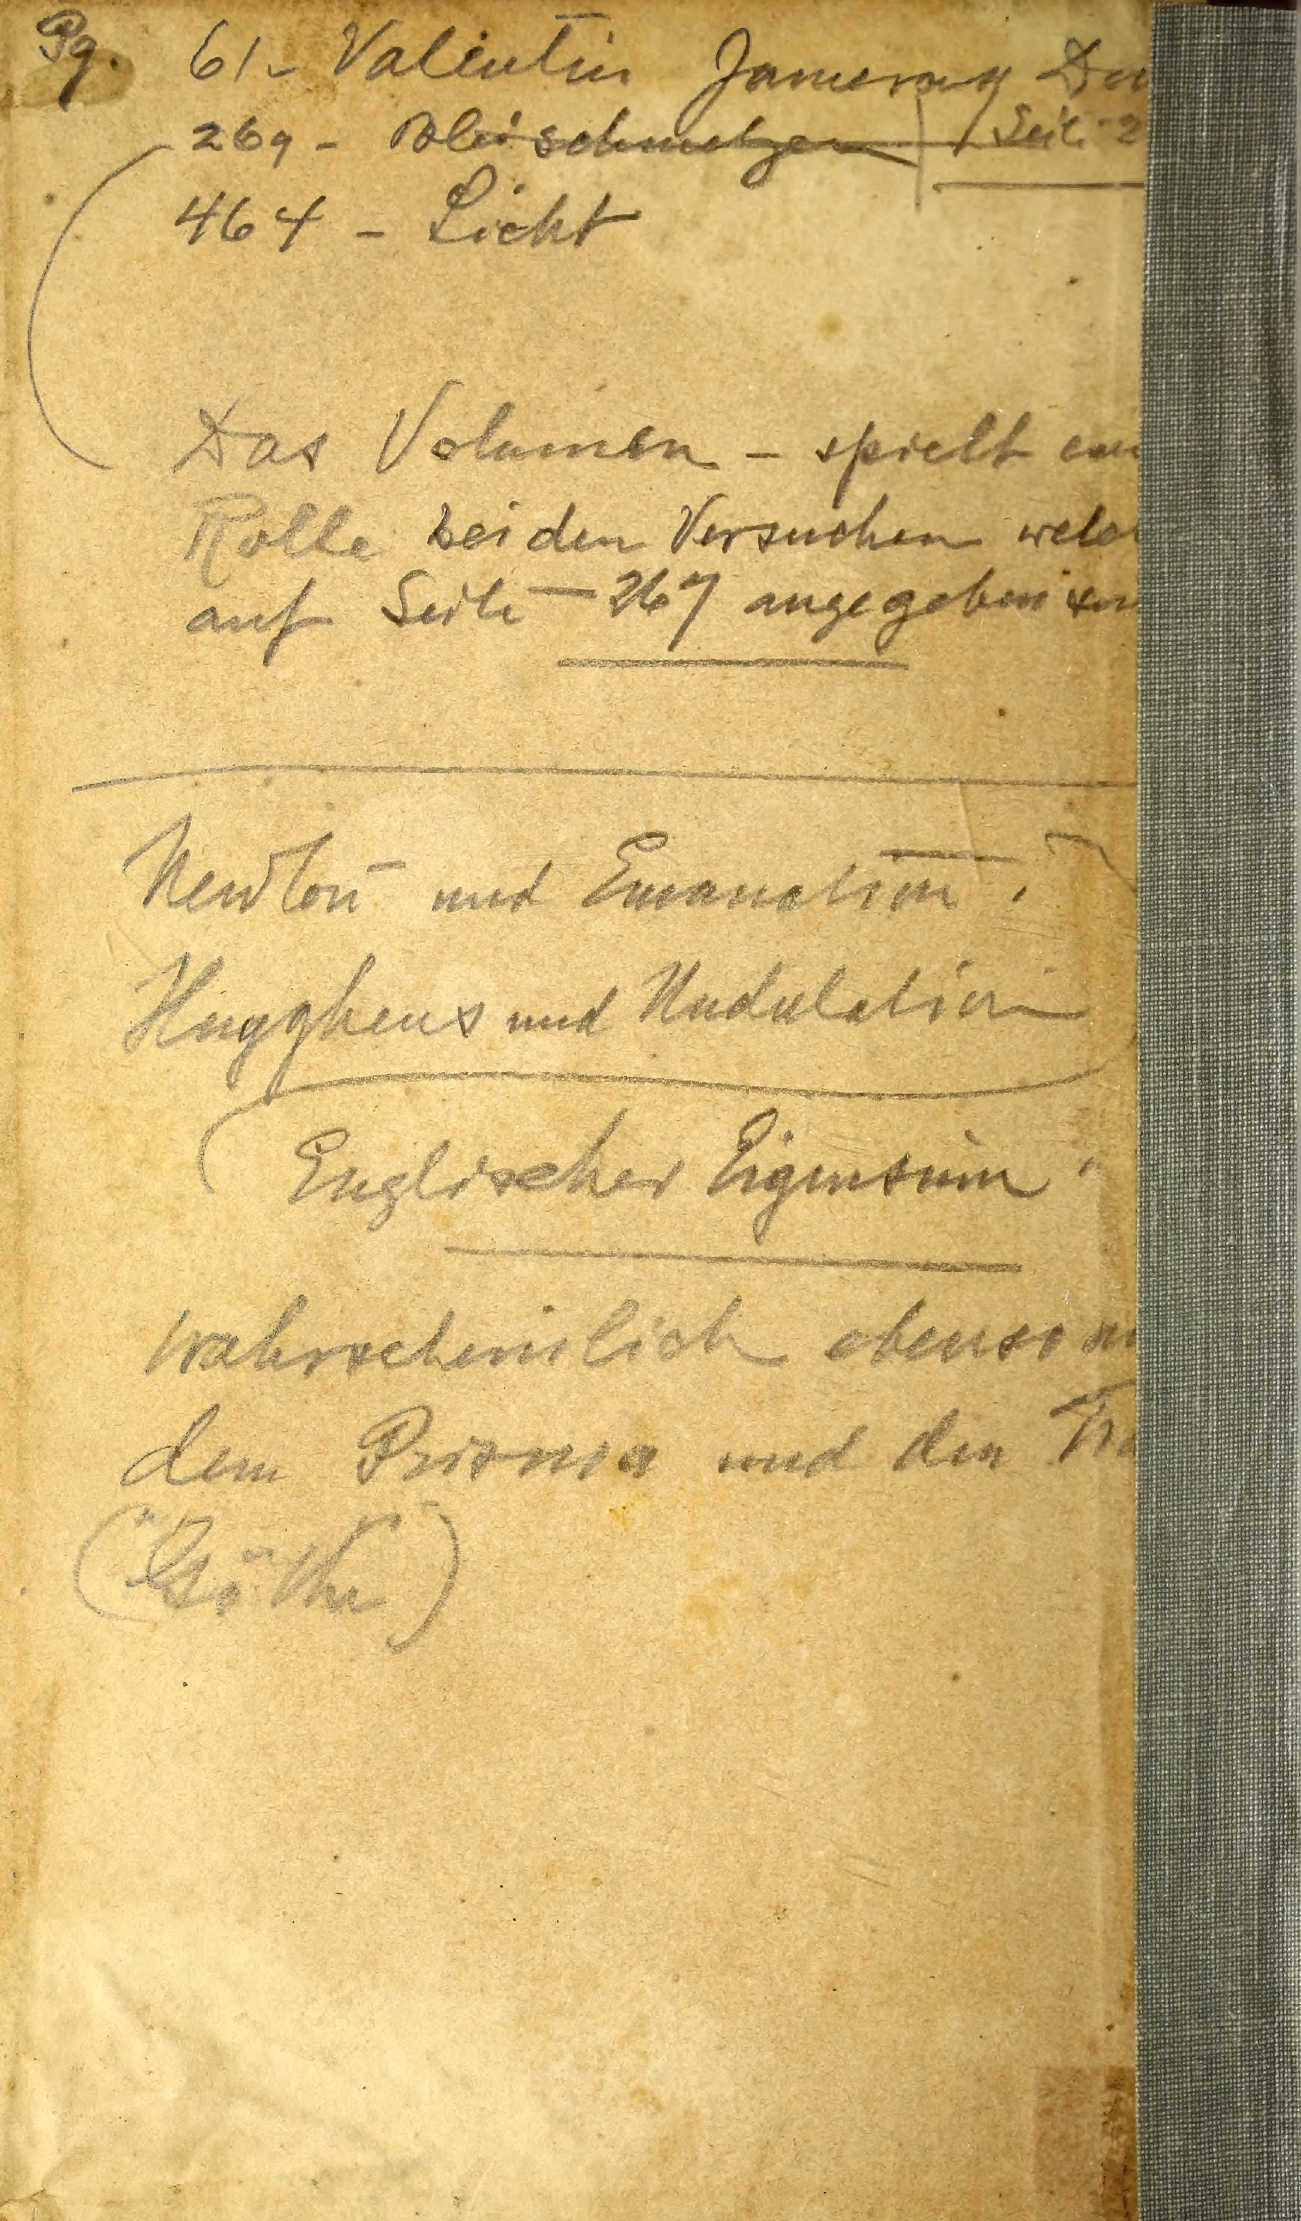 Pg. 61 - Valentin Jameray Du
269 - Bleischmelzen Seite 2
464 - Licht
Das Volumen - spielt ein
Rolle bei den Versuchen welc
auf Seite - 267 angegeben sin
Newton und Emanation.
Huyghens und Undulation
(Englischer Eigensinn
Wahrscheinlich ebenso m
dem Prisma und den
("Göthe")